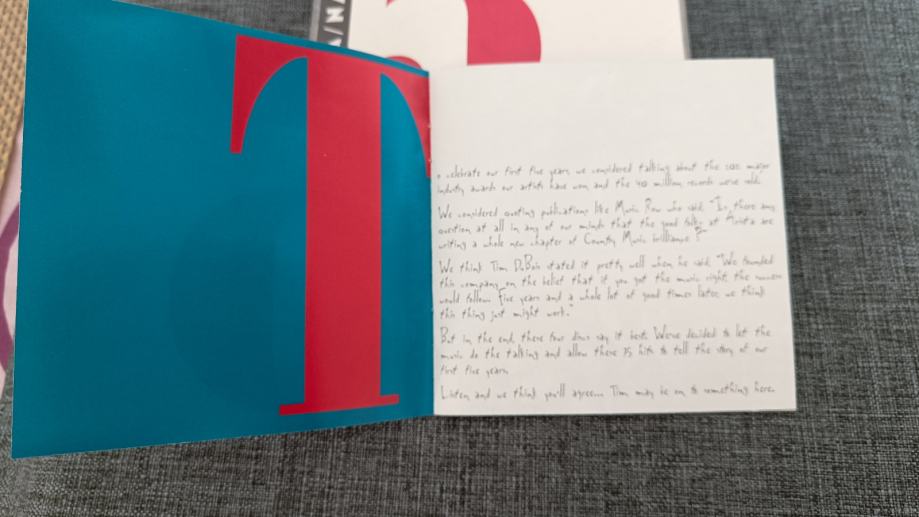 T
o celebrate our first five years, we considered talking about the major
industry awards our artists have won and the 40 million records we've sold.
We considered quoting publications like Music Row who said, "Is there any
question at all in any of our minds that the good folks at Arista are
writing a whole new chapter of Country Music brilliance?"
We think Tim DuBois stated it pretty well when he said, "We founded
this company on the belief that if you got the music right, the success
would follow. Five years and a whole lot of good times later, we think
this thing just might work."
But in the end, these four discs say it best. We've decided to let the
music do the talking and allow these 75 hits to tell the story of our
first five years.
Listen, and we think you'll agree... Tim may be on to something here.